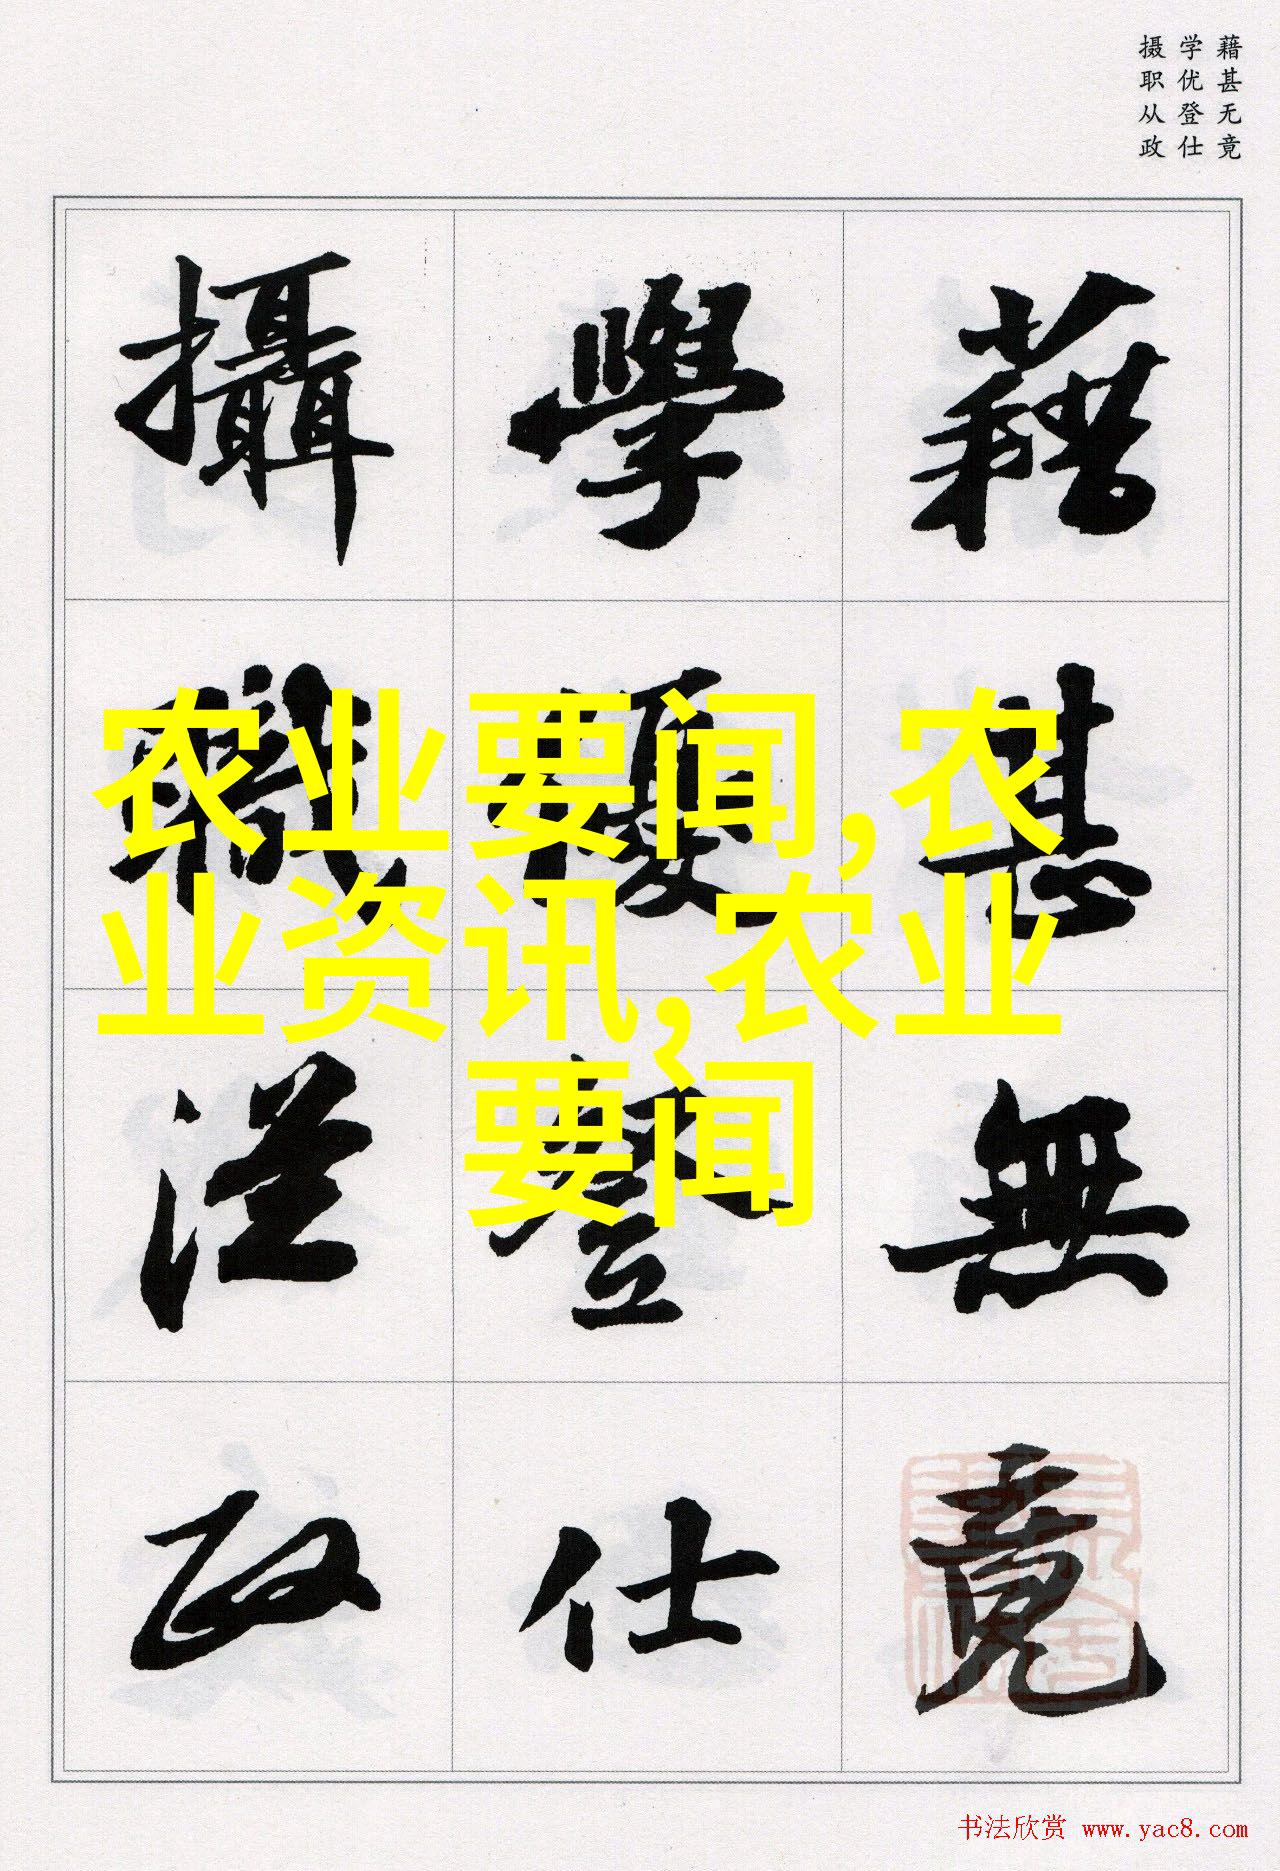 藉甚无竟
学优登仕
摄职从政
藉甚無竟
學優登仕
攝職從政
农业要闻,农
业资讯,农业
要闻
书法欣赏 www.yac8.com